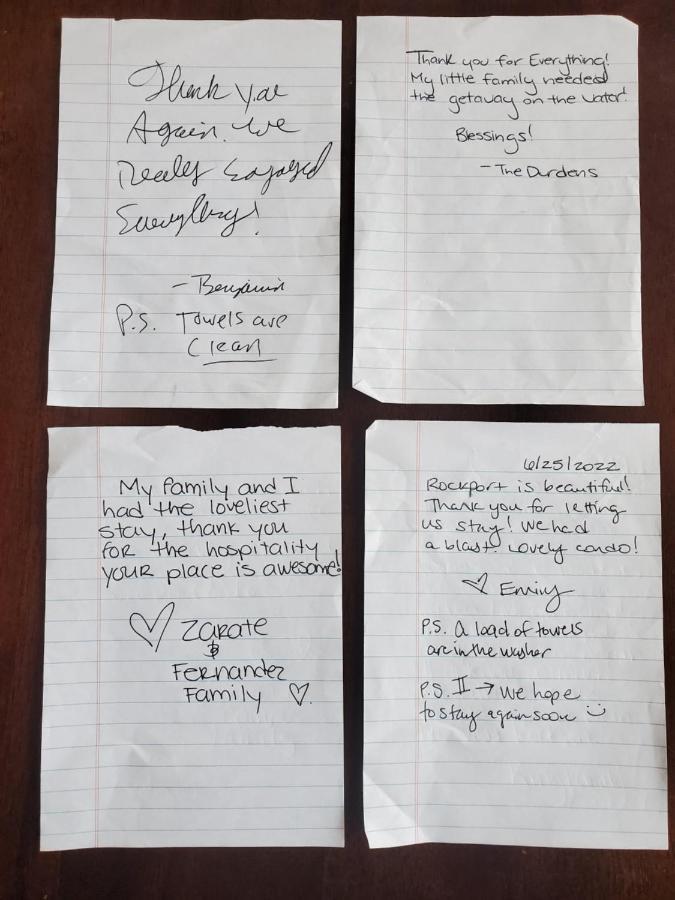 Thank you
Again. We
Really Enjoyed
Everything!
- Benjamin
P.S. Towels are
Clean
Thank you for Everything!
My little family needed
the getaway on the water!
Blessings!
- The Durdens
My family and I
had the loveliest
stay, thank you
for the hospitality
your place is awesome!
♡ Zarate
&
Fernandez
Family ♡
6/25/2022
Rockport is beautiful!
Thank you for letting
us stay! We had
a blast. Lovely condo!
♡ Emily
P.S. A load of towels
are in the washer
P.S. II → We hope
to stay again soon :)